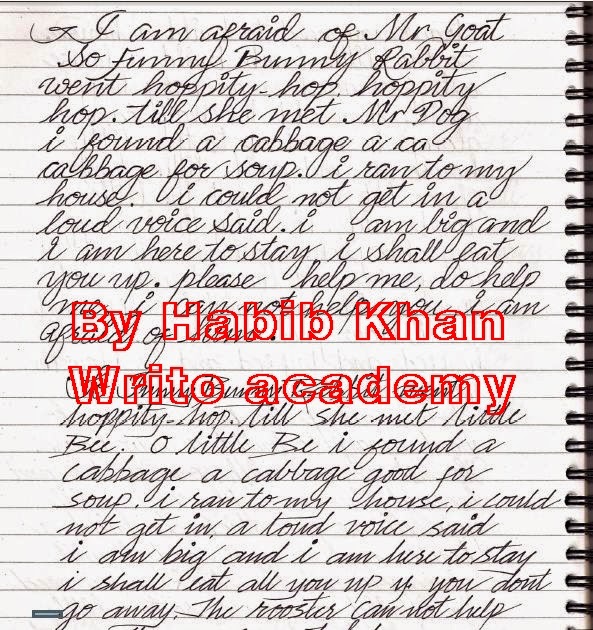 I am afraid of Mr Goat
So Funny Bunny Rabbit
went hoppity-hop, hoppity
hop. till she met Mr Dog
i found a cabbage a ca
cabbage for soup. i ran to my
house. i could not get in a
loud voice said. i am big and
i am here to stay i shall eat
you up. please help me, do help
me. i can not help you i am
afraid of
By Habib Khan
Writo academy
Funny Bunny Rabbit went
hoppity-hop. till she met little
Bee. O little Be i found a
cabbage a cabbage good for
soup. i ran to my house, i could
not get in. a loud voice said
i am big and i am here to stay
i shall eat all you up if you dont
go away. The rooster can not help